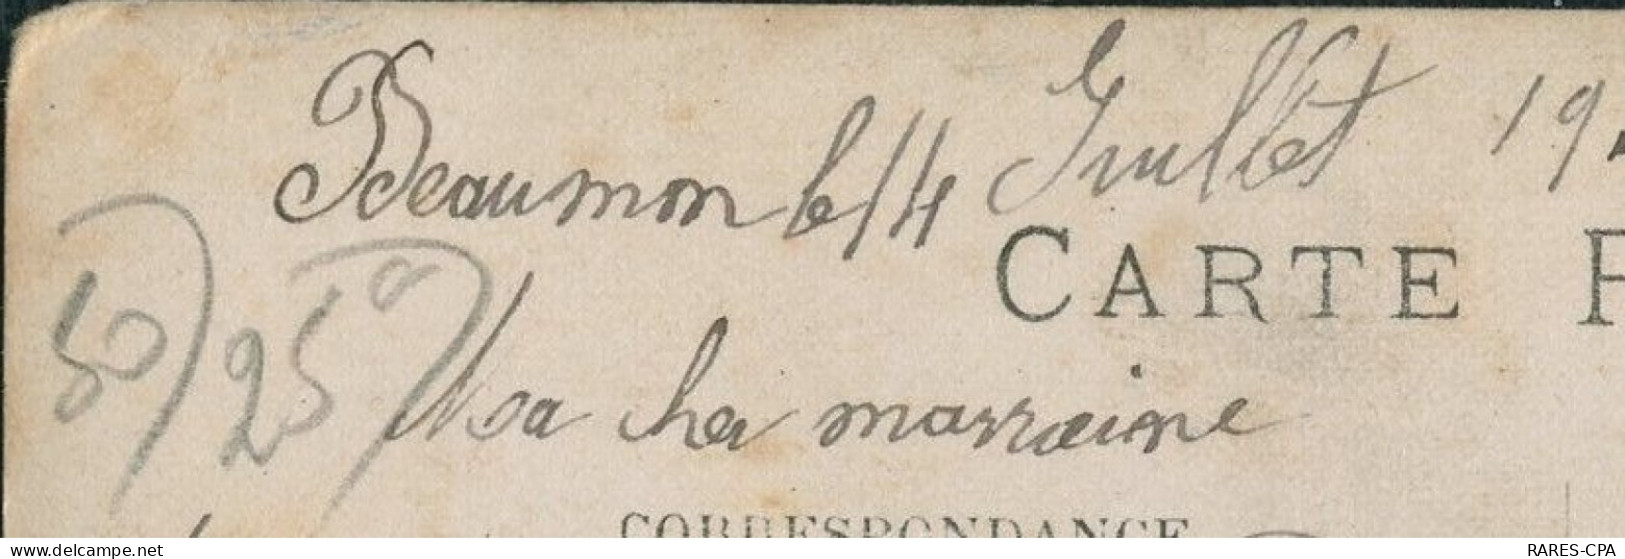 Beaumon le 14 Juillet 19
CARTE P
50 25
Ma cher marraine
CORRESPONDANCE
www.delcampe.net
RARES-CPA